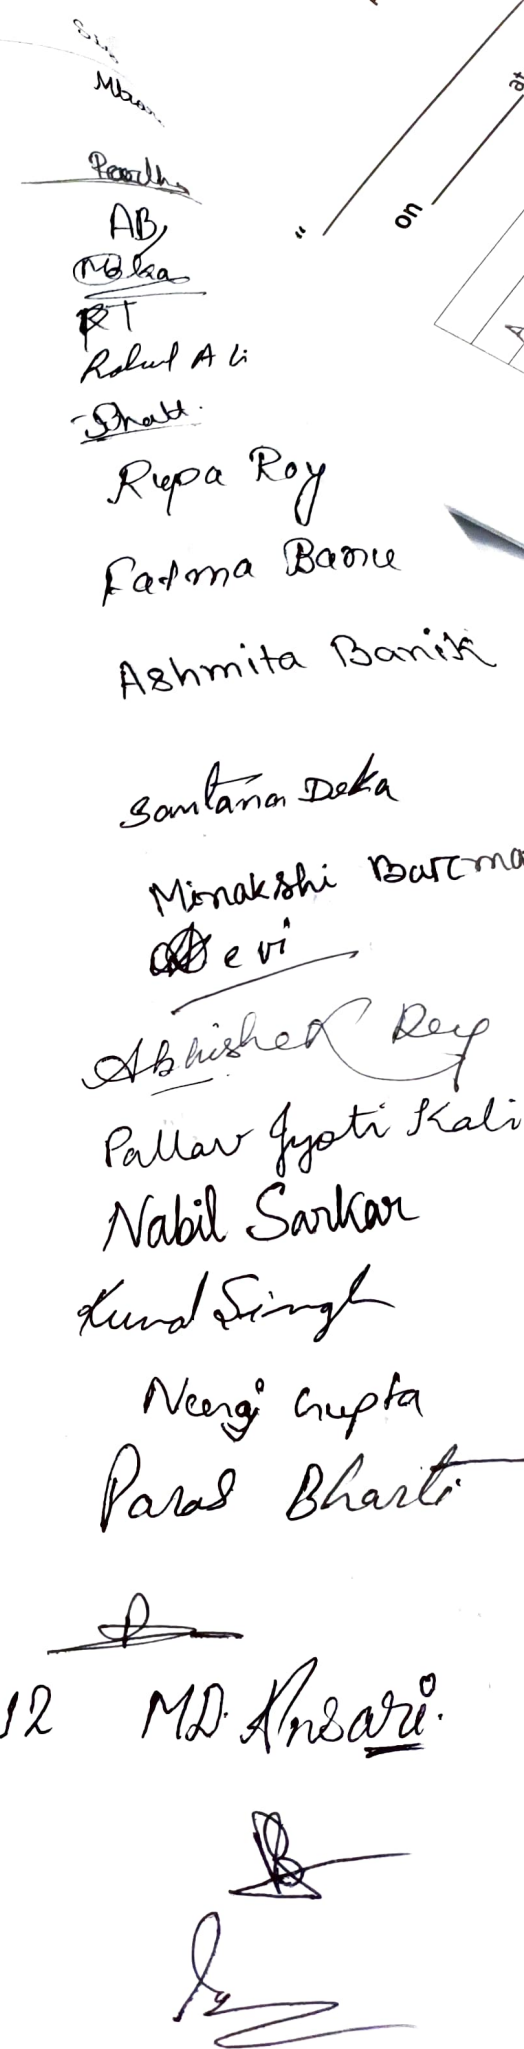 on
at
AB
RT
Rahul Ali
Bhatt.
Rupa Roy
Fatma Banu
Ashmita Banik
Santana Deka
Minakshi Barma
Devi
Abhishek Dey
Pallav Jyoti Kali
Nabil Sarkar
Singh
Neeraj Gupta
Paras Bharti
12 MD. Ansari.